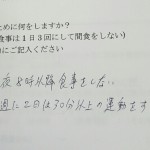 ために何をしますか?
食事は1日3回にして間食をしない)
的にご記入ください
夜8時以降食事をしない
週に2日は30分以上の運動をす